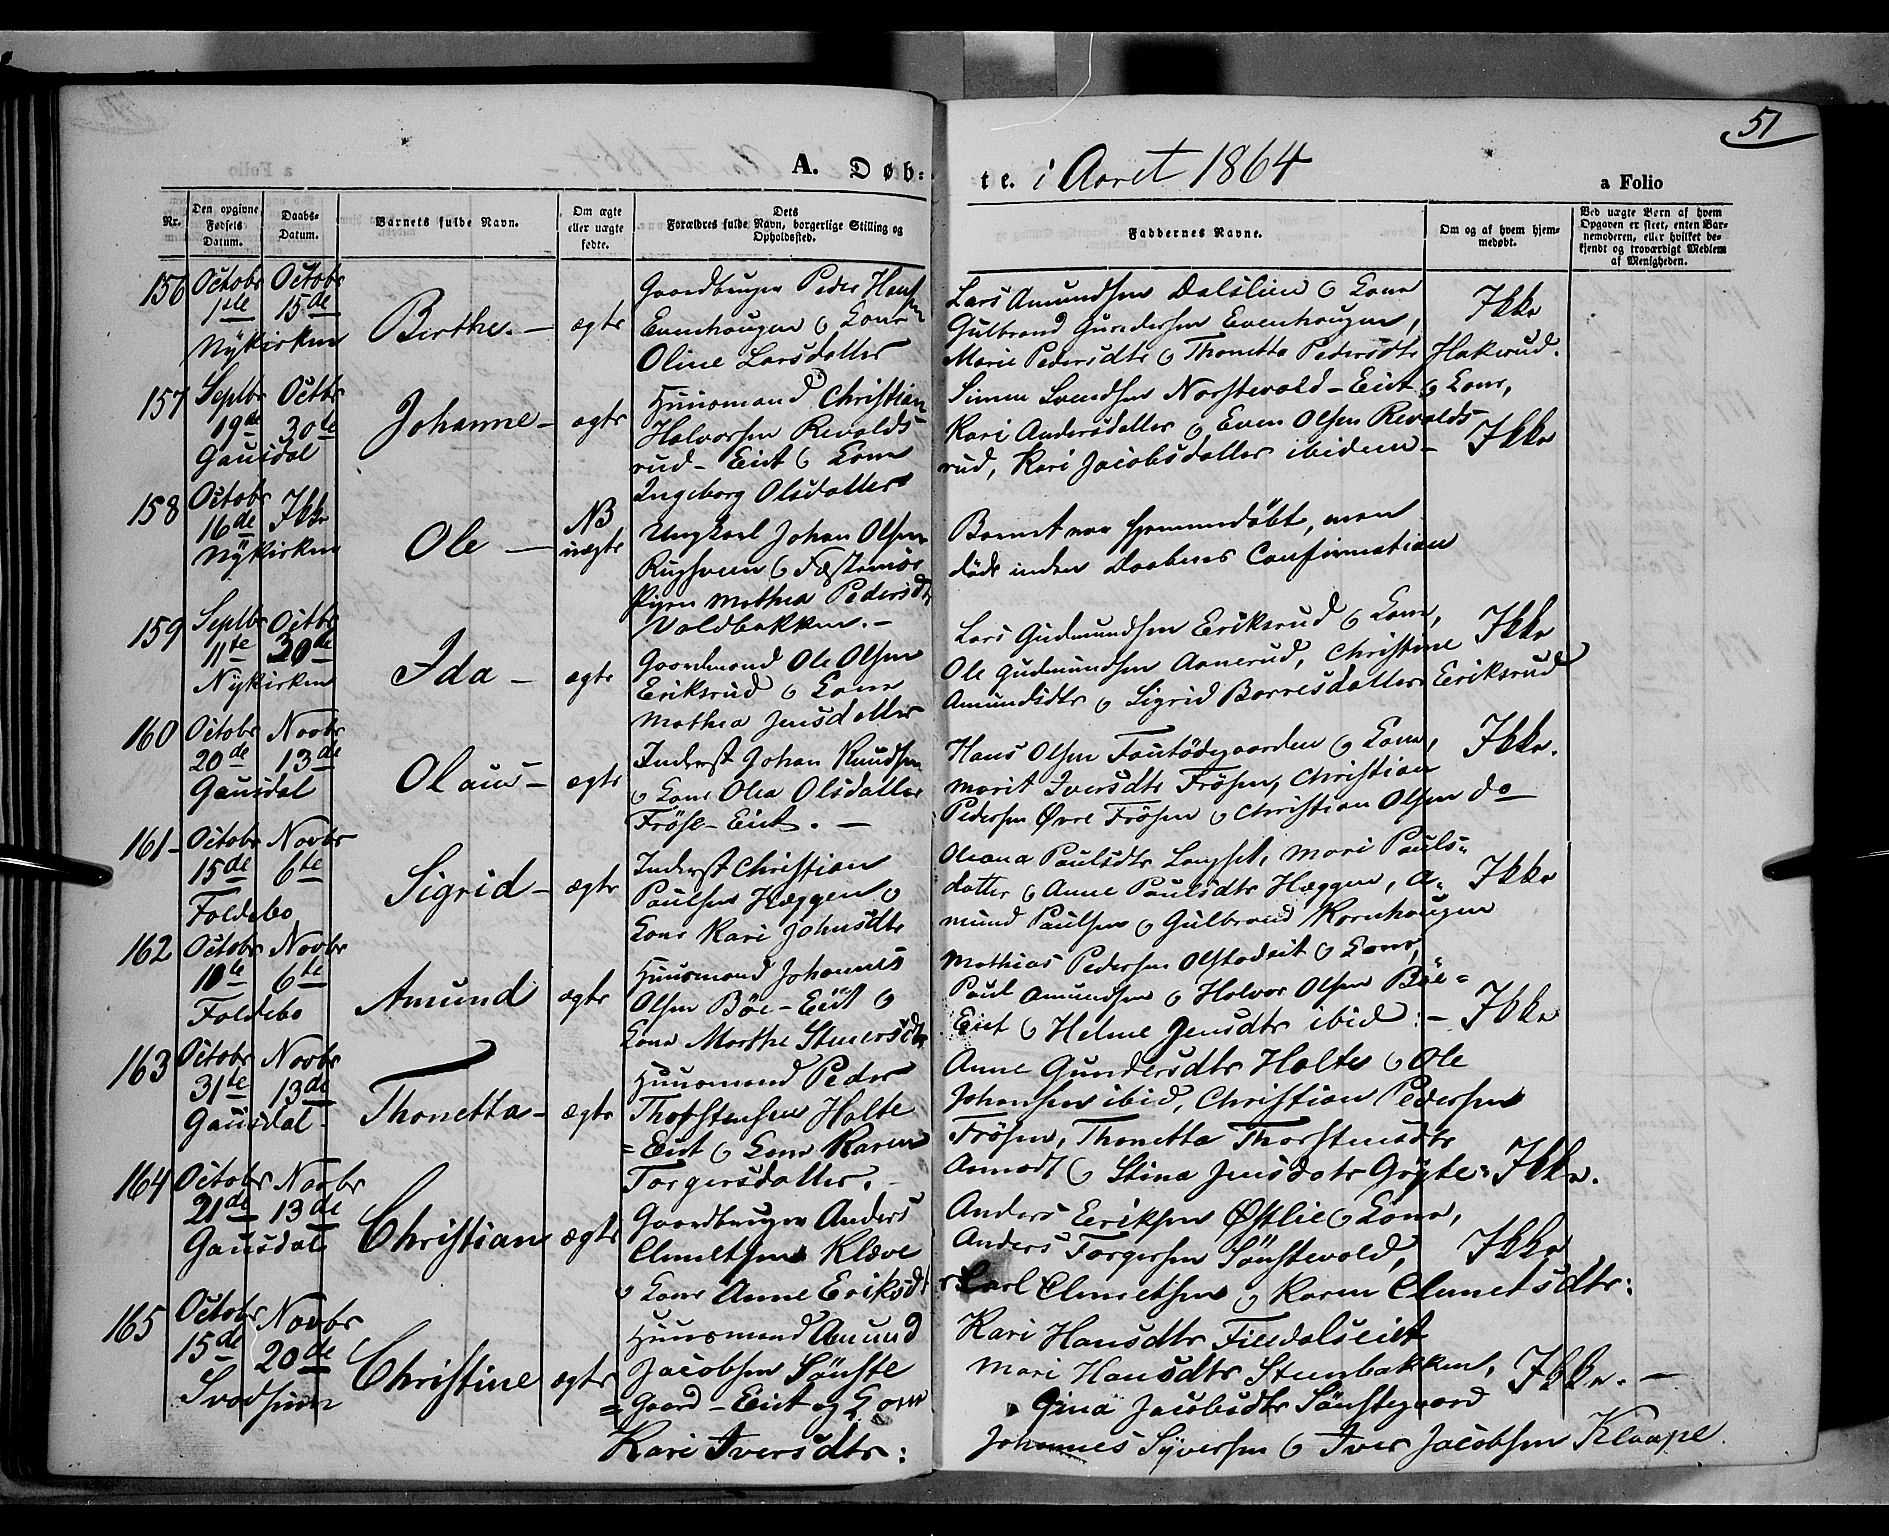 51
A. Døb-
te. i Aaret 1864
a Folio
Nr.
Den opgivne Fødsels Datum.
Daabs-Datum.
Barnets fulde Navn.
Om ægte eller uægte fødte.
Dets Forældres fulde Navn, borgerlige Stilling og Opholdssted.
Faddernes Navne.
Om og af hvem hjemmedøbt.
Ved uægte Børn af hvem Opgaven er skeet, enten Barnemoderen, eller hvilket bekjendt og troværdigt Medlem af Menigheden.
156
Octobr Octobr
1ste 15de
Nykirken
Berthe. — ægte
Gaardbruger Peder Hansen
Evenhaugen & Kone
Oline Larsdatter
Lars Amundsen Dalslien & Kone
Gulbrand Gundersen Evenhaugen,
Marie Pedersdtr & Thonetta Pedersdtr Hakerud.
Ikke
157
Septbr Octbr
19de 30te
Gausdal
Johanne — ægte
Huusmand Christian
Halvorsen Revolds-
rud - Eiet & Kone
Ingeborg Olsdatter
Simen Svendsen Norstevold - Eiet & Kone,
Kari Andersdatter & Even Olsen Revolds-
rud, Kari Jacobsdatter ibidem —
Ikke
158
Octobr
16de Ikke
Nykirken
Ole —
NB
uægte
Ungkarl Johan Olsen
Rugsveen & Fæstemøe
Pigen Mathea Pedersdtr
Voldbakken. —
Barnet var hjemmedøbt, men
døde inden Daabens Confirmation
159
Septbr Octbr
11te 30de
Nykirken
Ida — ægte
Gaardmand Ole Olsen
Eriksrud & Kone
Mathea Jensdatter
Lars Gudmundsen Eriksrud & Kone,
Ole Gudmundsen Aanerud, Christine
Amundsdtr & Sigrid Borresdatter Eriksrud
Ikke
160
Octobr Novbr
20de 13de
Gausdal
Olaus — ægte
Inderst Johan Knudsen
& Kone Olea Olsdatter
Frøse - Eiet. —
Hans Olsen Fautødegaarden & Kone,
Marit Iversdtr Frøsen, Christian
Pedersen Øvre Frøsen & Christian Olsen do
Ikke.
161
Octobr Novbr
15de 6te
Foldebo
Sigrid — ægte
Inderst Christian
Paulsen Hæggen &
Kone Kari Johnsdtr
Oleana Paulsdtr Langset, Mari Pauls-
datter & Anne Paulsdtr Hæggen, A-
mund Paulsen & Gulbrand Kornhaugen
Ikke
162
Octobr Novbr
10te 6te
Foldebo
Amund ægte
Huusmand Johannes
Olsen Böe - Eiet &
Kone Marthe Steuersdtr
Mathias Pedersen Olstadeiet & Kone,
Paul Amundsen & Halvor Olsen Böe-
Eiet & Helene Jensdtr ibid: —
Ikke
163
Octobr Novbr
31te 13de
Gausdal
Thonetta — ægte
Huusmand Peder
Thorstensen Holte
= Eiet & Kone Karen
Torgersdatter.
Anne Gundersdtr Holte & Ole
Johansen ibid, Christian Pedersen
Frøsen, Thonetta Thorstensdtr
& Stina Jensdatr
Ikke.
164
Octobr Novbr
21de 13de
Gausdal
Christian ægte
Gaardbruger Anders
Clemetsen Klæve
& Kone Anne Eriksdtr
Anders Eriksen Østlie & Kone,
Anders Torgersen Sønstevold,
Carl Clemetsen & Karen Clemetsdtr:
Ikke
165
Octobr Novbr
15de 20de
Svadsum
Christine ægte
Huusmand Amund
Jacobsen Sønste
= Gaard - Eiet og Kone
Kari Iversdtr:
Kari Hansdtr
Mari Hansdtr Steenbakken,
Gina Jacobsdtr Sønstegaard
Johannes Syversen & Iver Jacobsen Klaape.
Ikke. —